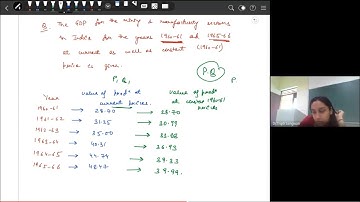 Q. The GDP for the mining & manufacturing sectors
in India for the years 1960-61 and 1965-66
at current as well as constant (1960-61)
price is given.
P.Q P
P, Q,
Year value of prodn at current prices. value of prodn at constant 1960-61 prices
1960-61 → 28.70 → 28.70
1961-62 → 31.25 → 30.99
1962-63 → 35.00 →
1963-64 → 40.31 →
1964-65 → 44.74 →
1965-66 → → 39.99